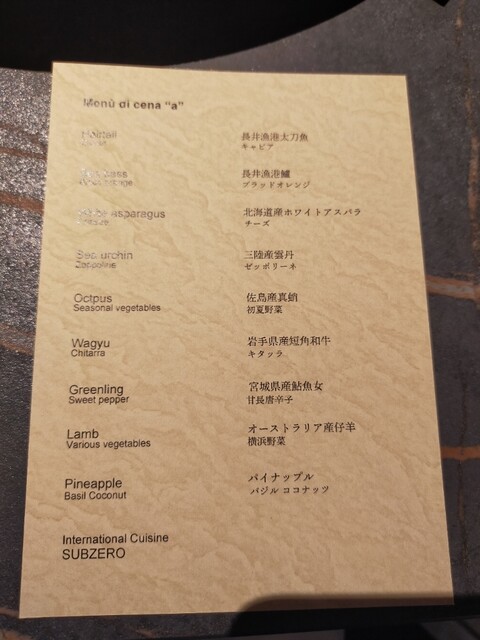 Menù di cena "a"
Hairtail 長井漁港太刀魚
キャビア
長井漁港鱸
ブラッドオレンジ
White asparagus 北海道産ホワイトアスパラ
Cheese チーズ
Sea urchin 三陸産雲丹
Zeppoline ゼッポリーネ
Octpus 佐島産真蛸
Seasonal vegetables 初夏野菜
Wagyu 岩手県産短角和牛
Chitarra キタッラ
Greenling 宮城県産鮎魚女
Sweet pepper 甘長唐辛子
Lamb オーストラリア産仔羊
Various vegetables 横浜野菜
Pineapple パイナップル
Basil Coconut バジル ココナッツ
International Cuisine
SUBZERO